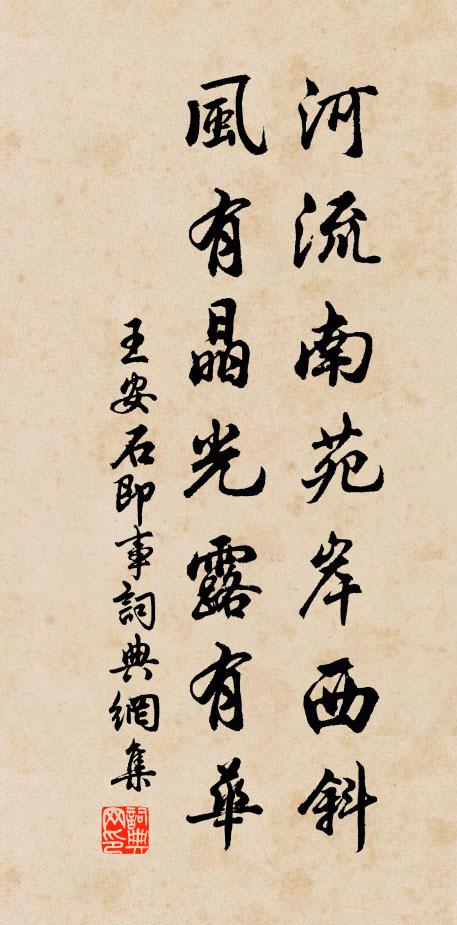 河流南苑岸西斜
風有晶光露有華
王安石即事詞典網集
詞典网印